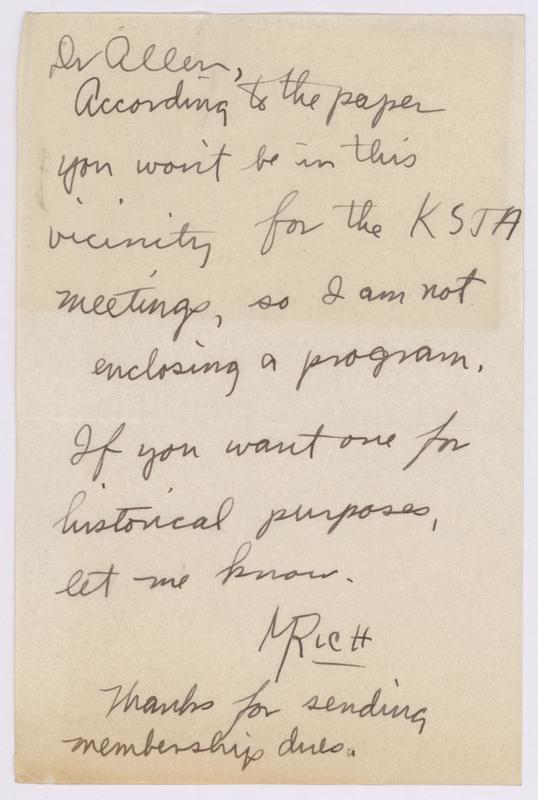 Dr Allen,
According to the paper
you won't be in this
vicinity for the KSTA
meetings, so I am not
enclosing a program.
If you want one for
historical purposes,
let me know.
MRICH
Thanks for sending
membership dues.